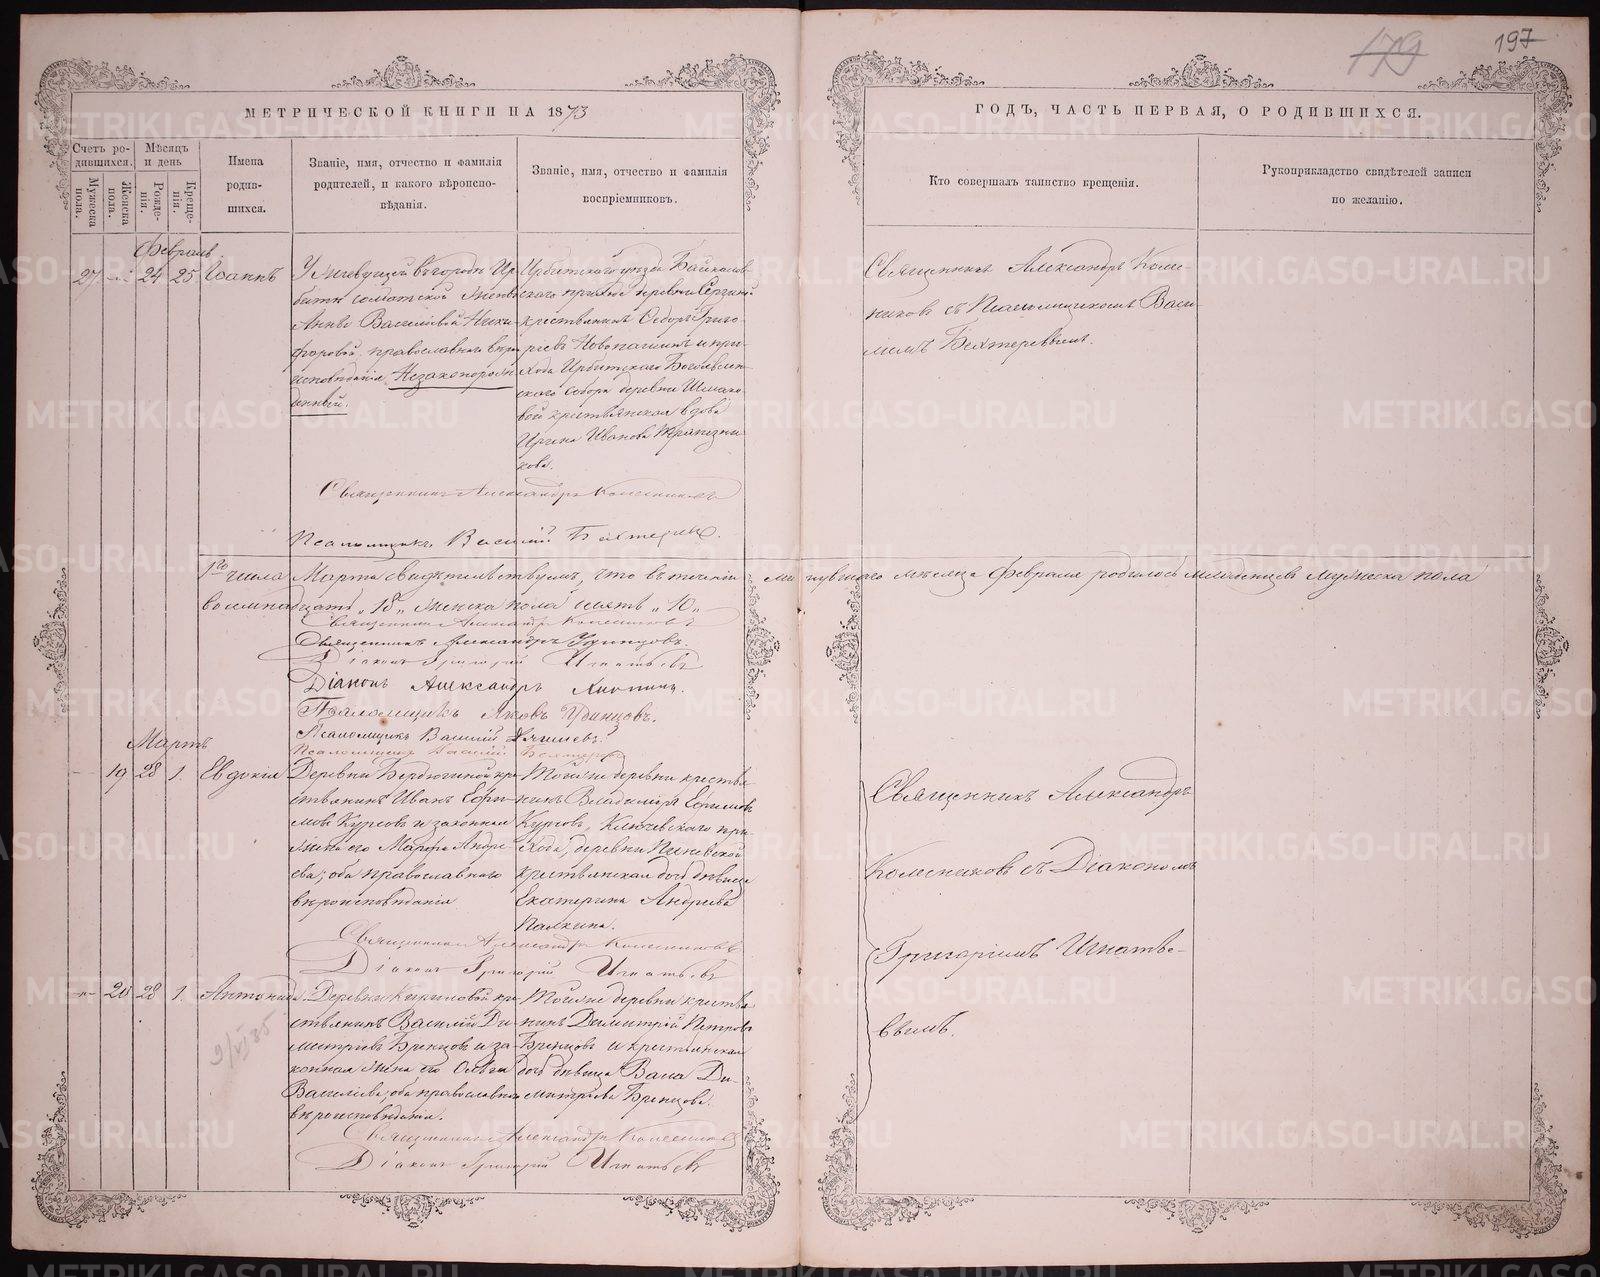 179
197
МЕТРИЧЕСКОЙ КНИГИ НА 1873
ГОДЪ, ЧАСТЬ ПЕРВАЯ, О РОДИВШИХСЯ.
Счетъ ро-
дившихся.
Мужеска
пола.
Женска
пола.
Мѣсяцъ
и день
Рожде-
нія.
Креще-
нія.
Имена
родив-
шихся.
Званіе, имя, отчество и фамилія
родителей, и какого вѣроиспо-
вѣданія.
Званіе, имя, отчество и фамилія
воспріемниковъ.
Кто совершалъ таинство крещенія.
Рукоприкладство свидѣтелей записи
по желанію.
Февраль
27 24 25 Іоаннъ
У живущей въ городѣ Ир-
бити солдатской жены
Анны Васильевой Ники-
форовой, православнаго вѣро-
исповѣданія, Незаконорож-
денный.
Ирбитскаго уѣзда Байкалов-
скаго прихода деревни
крестьянинъ Ѳедоръ Григо-
рьевъ Новопашинъ и при-
хода Ирбитскаго Богоявлен-
скаго собора деревни
вой крестьянская вдова
Ирина Иванова Трапезни-
кова.
Священникъ Александръ Колес-
никовъ съ Псаломщикомъ Васи-
ліемъ Бехтеревымъ.
Священникъ Александръ Колесниковъ
Псаломщикъ Василій Бехтеревъ.
1го числа Марта свидѣтельствуемъ, что въ теченіи минувшаго мѣсяца Февраля родилось младенцевъ мужеска пола
восемнадцать „18„ женска пола десять „10„
Священникъ Александръ Колесниковъ
Священникъ Александръ Удинцовъ.
Діаконъ Григорій Игнатьевъ
Діаконъ Александръ
Псаломщикъ Яковъ Удинцовъ.
Псаломщикъ Василій
Псаломщикъ Василій Бехтеревъ
Мартъ
19 28 1. Евдокія
Деревни Бердюгиной кре-
стьянинъ Иванъ Ефи-
мовъ Курсовъ и законная
жена его Марфа Андре-
ева; оба православнаго
вѣроисповѣданія
Тойже деревни крестья-
нинъ Владиміръ Ефимовъ
Курсовъ, Ключевскаго при-
хода, деревни
крестьянская дочь дѣвица
Екатерина Андреева
Палкина.
Священникъ Александръ
Колесниковъ съ Діакономъ
Григоріемъ Игнатье-
вымъ.
Священникъ Александръ Колесниковъ
Діаконъ Григорій Игнатьевъ
20 28 1. Антонида
Деревни Кириловой кре-
стьянинъ Василій Ди-
митріевъ Бренцовъ и за-
конная жена его Ольга
Васильева; оба православнаго
вѣроисповѣданія.
Тойже деревни крестья-
нинъ Димитрій Петровъ
Бренцовъ и крестьянская
дочь дѣвица Васса Ди-
митріева Бренцова.
Священникъ Александръ Колесниковъ
Діаконъ Григорій Игнатьевъ